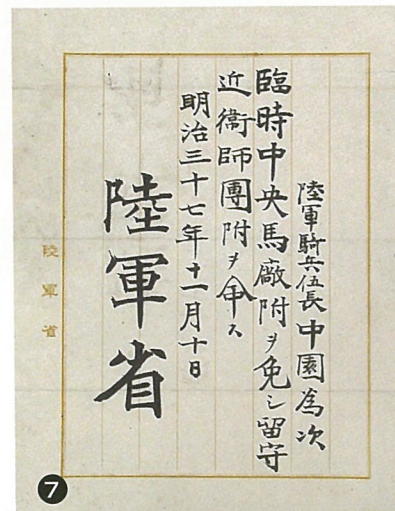 陸軍騎兵伍長中園為次
臨時中央馬廠附ヲ免シ留守
近衞師團附ヲ命ス
明治三十七年十一月十日
陸軍省
陸軍省
7